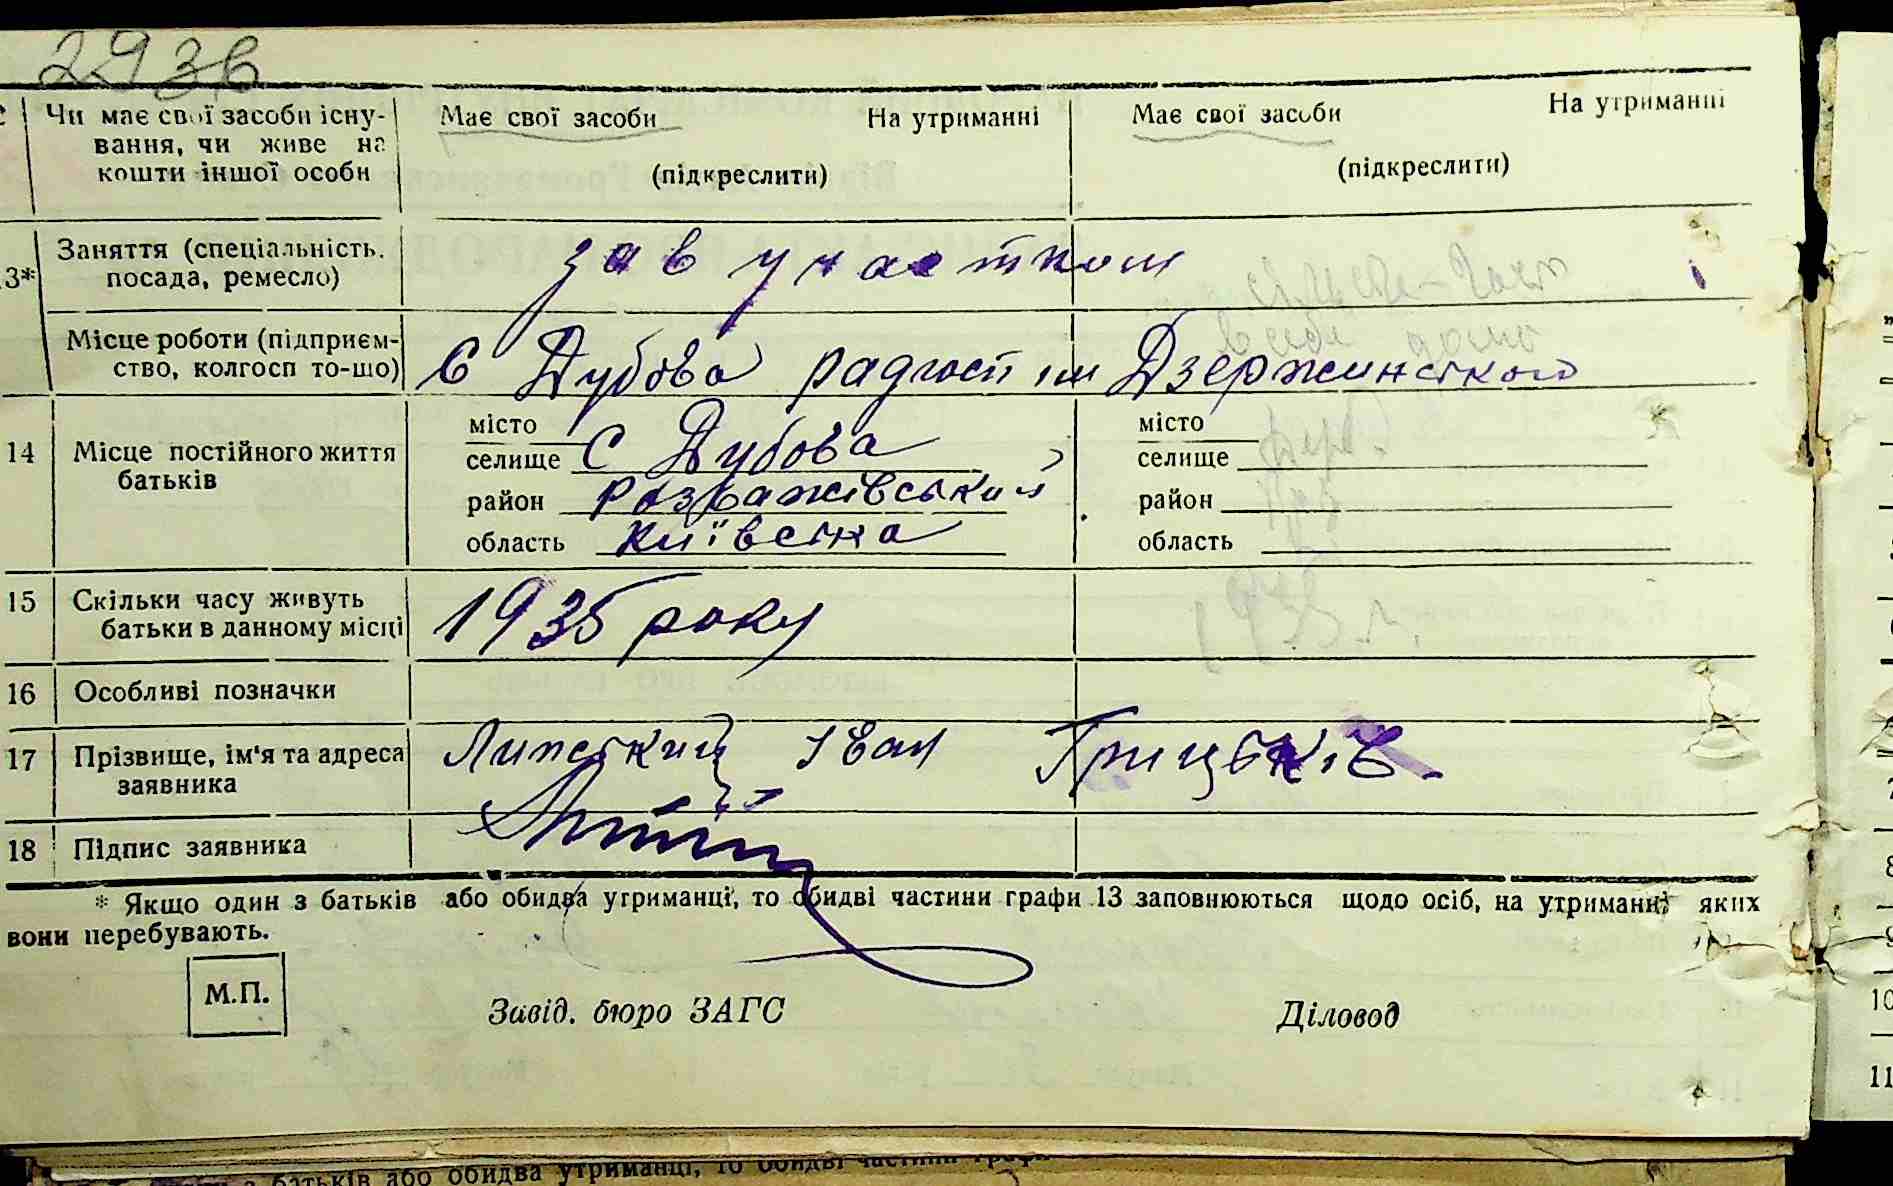 2936
Чи має свої засоби існу-
вання, чи живе на
кошти іншої особи
Має свої засоби На утриманні
(підкреслити)
Має свої засоби На утриманні
(підкреслити)
13*
Заняття (спеціальність.
посада, ремесло)
зав участком
Місце роботи (підприєм-
ство, колгосп то-що)
С Дубова радгосп ім Дзержинського
14
Місце постійного життя
батьків
місто
селище С Дубова
район Розважівський
область Київська
місто
селище
район
область
15
Скільки часу живуть
батьки в данному місці
1935 року
16 Особливі позначки
17
Прізвище, ім'я та адреса
заявника
Липський Іван Грицьків.
18 Підпис заявника
* Якщо один з батьків або обидва утриманці, то обидві частини графи 13 заповнюються щодо осіб, на утриманні яких
вони перебувають.
М.П.
Завід. бюро ЗАГС Діловод
10
11
з батьків або обидва утриманці, то обидві частини графи